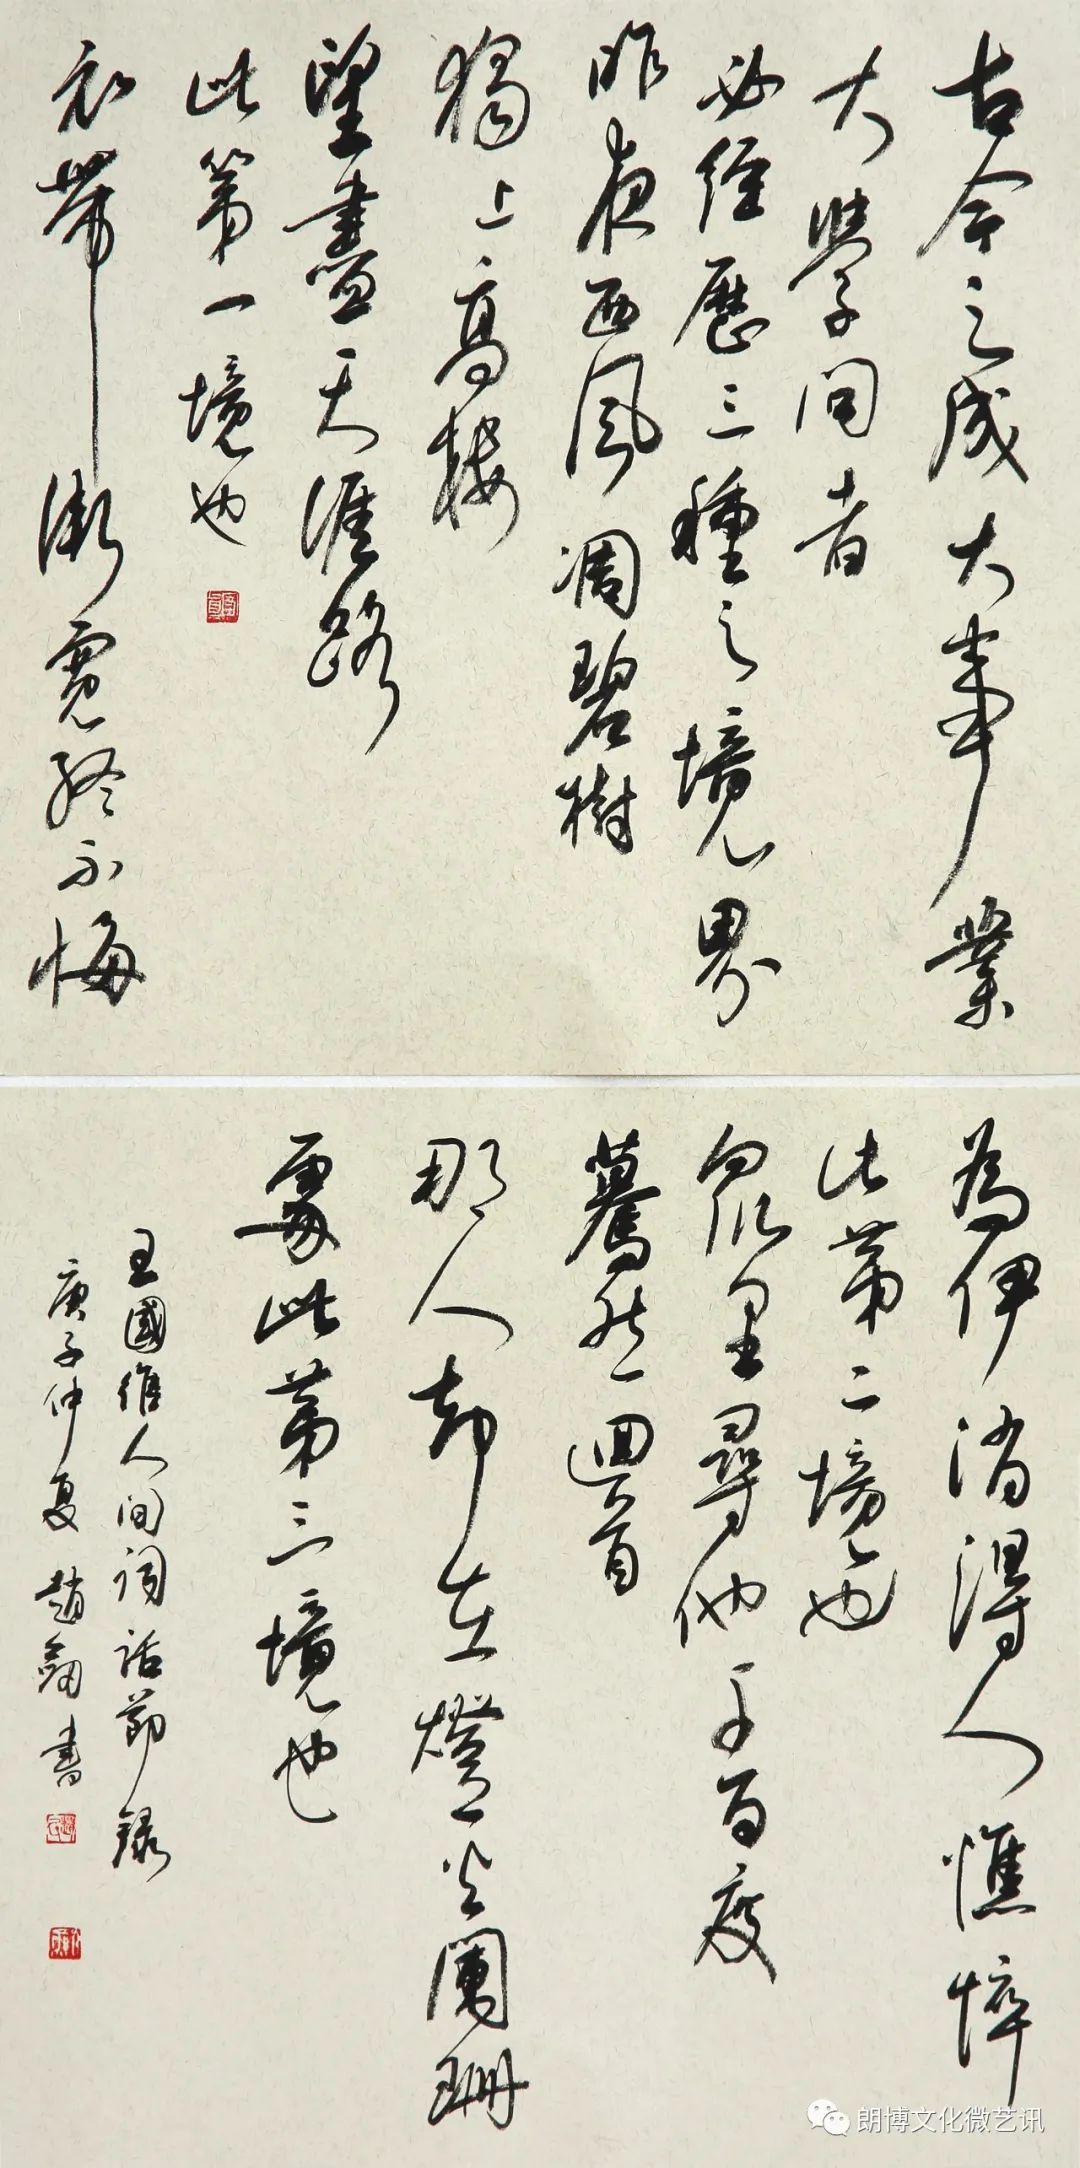 古今之成大事業
大學问者
必经歷三種之境界
昨夜西風凋碧樹
獨上高樓
望盡天涯路
此第一境也
衣帶漸寬終不悔
為伊消得人憔悴
此第二境也
眾里尋他千百度
驀然迴首
那人却在燈火闌珊
處此第三境也
王國維人间词话節録
庚子仲夏 趙 書
朗博文化微艺讯